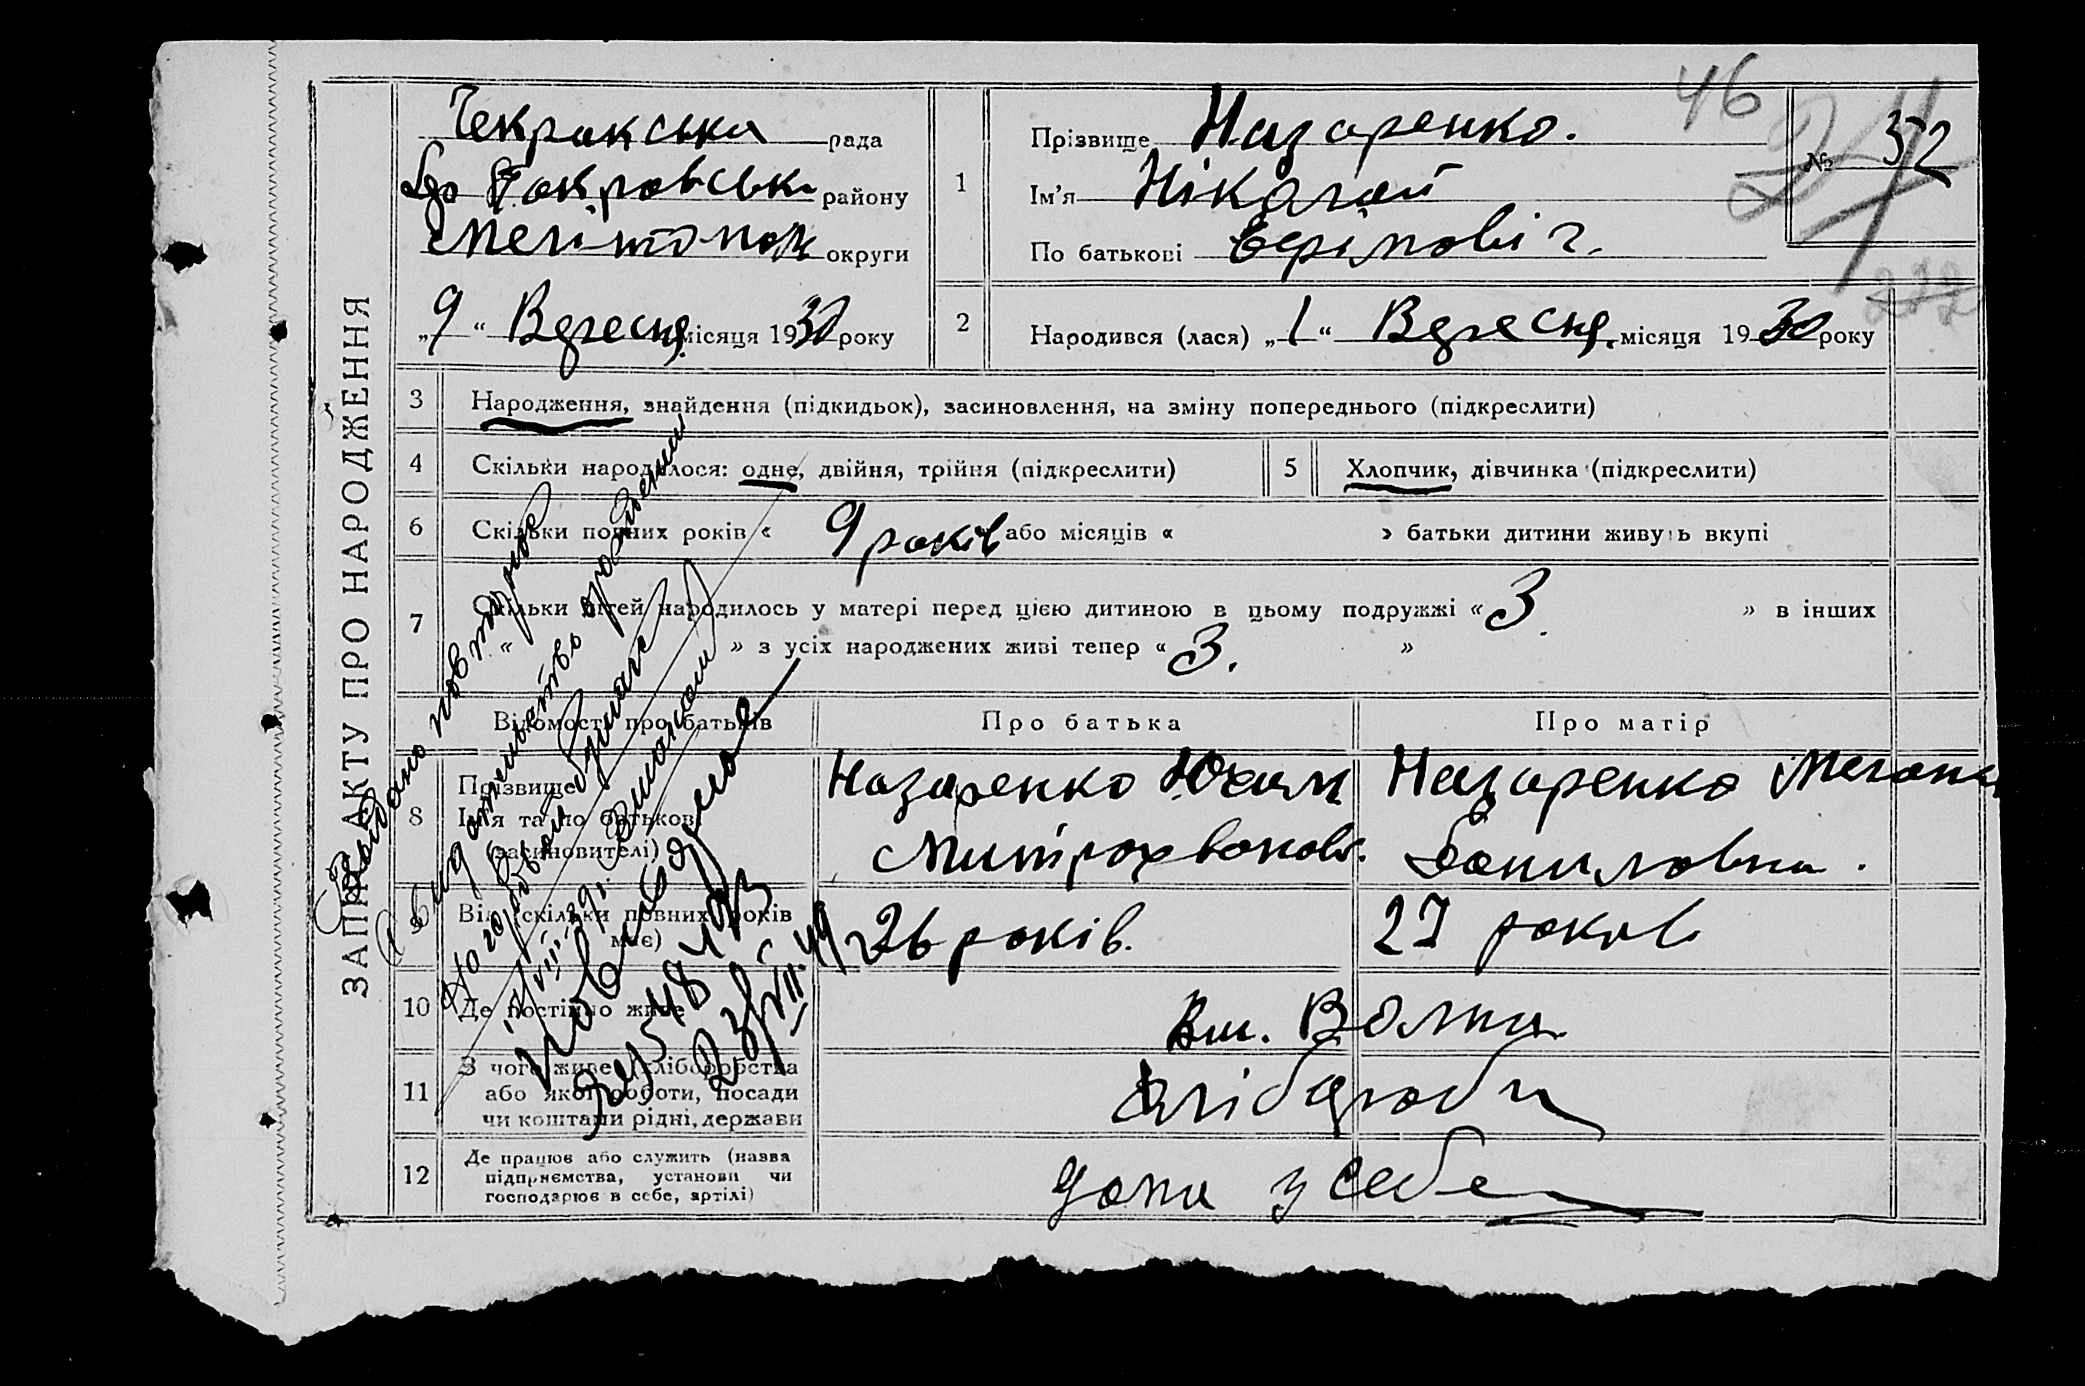 ЗАПИС АКТУ ПРО НАРОДЖЕННЯ
Чекракська рада
Покровськ району
Мелітопол округи
„9“ Вересня місяця 1930 року
1
Прізвище Назаренко.
Ім'я Ніколай
По батькові Єфімовіч.
46
№ 52
2
Народився (лася) „1“ Вересня місяця 1930 року
3
Народження, знайдення (підкидьок), засиновлення, на зміну попереднього (підкреслити)
4
Скільки народилося: одне, двійня, трійня (підкреслити)
5
Хлопчик, дівчинка (підкреслити)
6
Скільки повних років « 9 років або місяців « » батьки дитини живуть вкупі
7
Скільки дітей народилось у матері перед цією дитиною в цьому подружжі « 3 » в інших
« » з усіх народжених живі тепер « 3. »
Відомості про батьків
Про батька
Про матір
8
Прізвище
Ім'я та по батькові
(засиновителі)
Назаренко Юхим
Митрохванов.
Назаренко Мелан
Даниловна.
Вік (скільки повних років
має)
26 років.
27 років
10
Де постійно живе
Вш. Волни
11
З чого живе (хліборобства
або якої роботи, посади
чи коштами рідні, держави
Хлібороби
12
Де працює або служить (назва
підприємства, установи чи
господарює в себе, артілі)
дома у себе
повторное
свидетельство о рождении